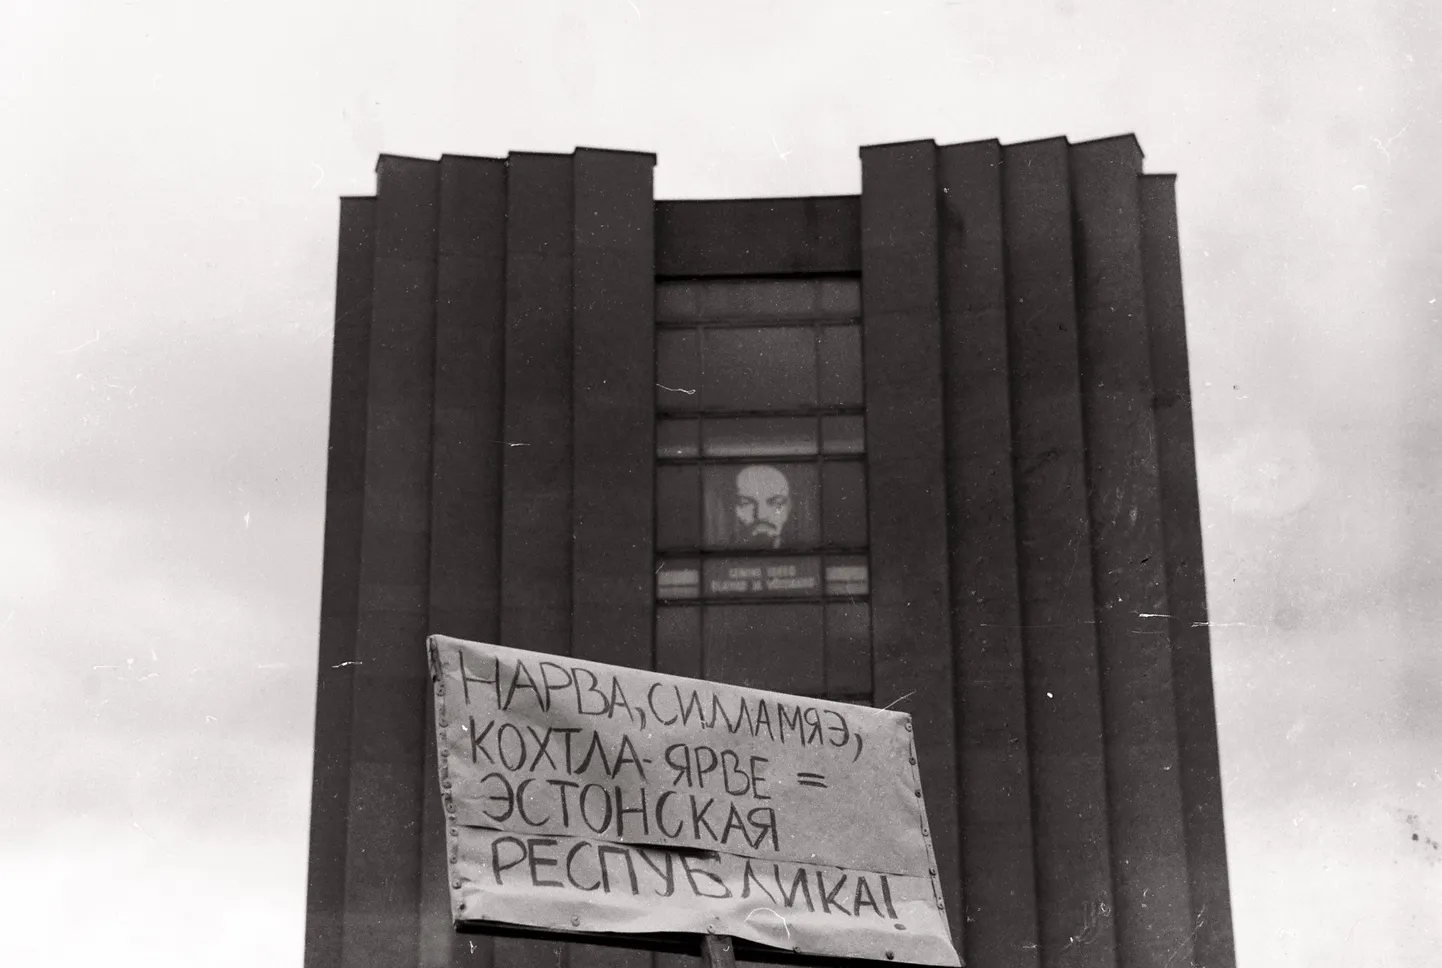 НАРВА, СИЛЛАМЯЭ,
КОХТЛА-ЯРВЕ =
ЭСТОНСКАЯ
РЕСПУБЛИКА!